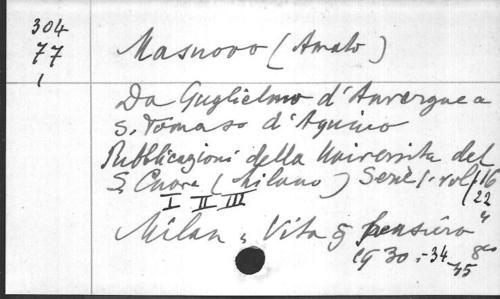 304
77
1
Masnovo (Amato)
Da Guglielmo d'Auvergne a
S. Tomaso d'Aquino
Pubblicazioni della Universita del
S. Cuore (Milano) Serie 1. vol. 16
22
I II III
Milan, Vita & pensiero
1930-34-45 8vo